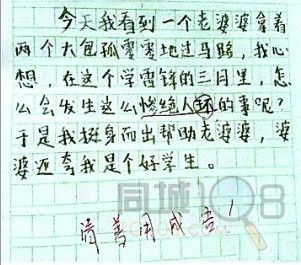 今天我看到一个老婆婆拿着
两个大包孤零零地过马路，我心
想，在这个学雷锋的三月里，怎
么会发生这么惨绝人环的事呢？
于是我挺身而出帮助老婆婆，婆
婆还夸我是个好学生。
同城108
请善用成语！